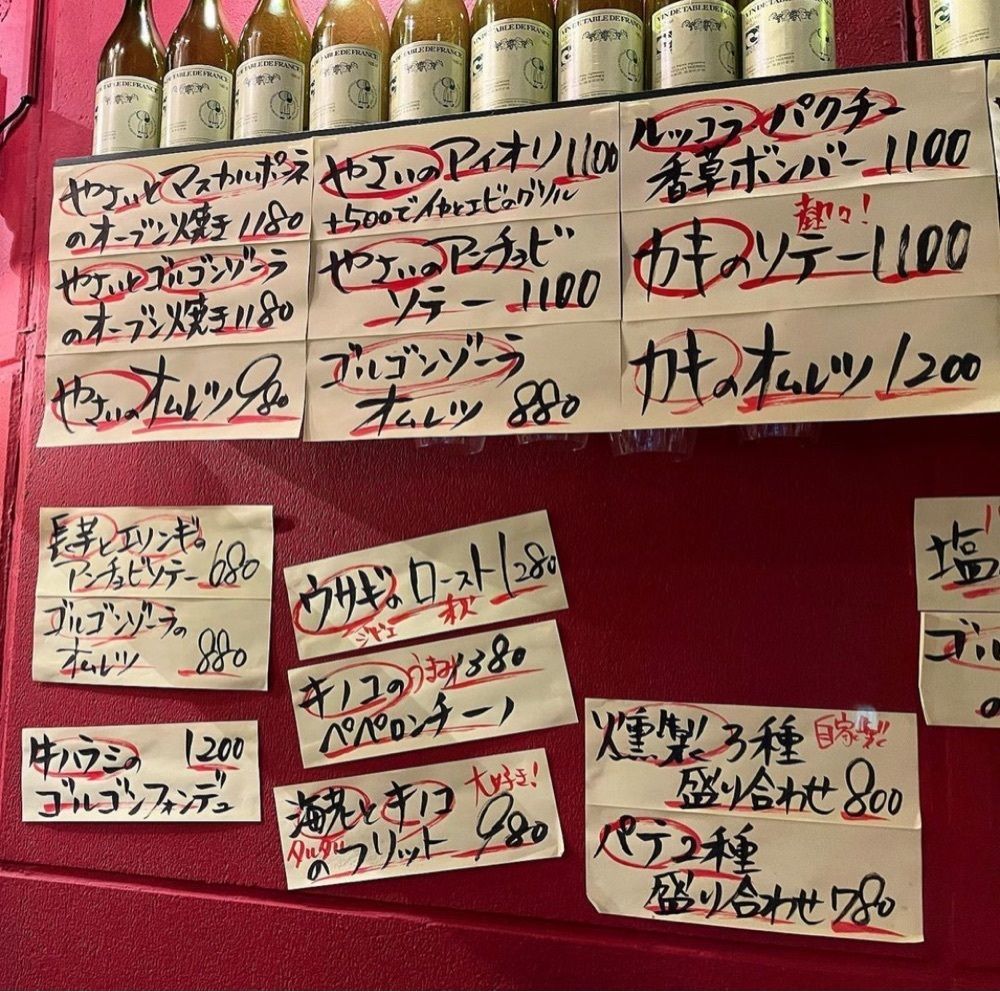 VIN DE TABLE DE FRANCE
DE TABLE DE FRANCE
VIN DE TABLE DE FRANCE
VIN DE TABLE DE FRANCE
VIN DE TABLE DE FRANCE
VIN DE TABLE DE FRANCE
VIN DE TABLE DE FRANCE
やさいとマスカルポーネ
のオーブン焼き 1180
やさいとゴルゴンゾーラ
のオーブン焼き 1180
やさいのオムレツ 980
やさいのアイオリ 1100
+500でイカとエビのグリル
やさいのアンチョビ
ソテー 1100
ゴルゴンゾーラ
オムレツ 880
ルッコラパクチー
香草ボンバー 1100
熱々!
カキのソテー 1100
カキのオムレツ 1200
長芋とエリンギの
アンチョビソテー 680
ゴルゴンゾーラの
オムレツ 880
牛ハラミの 1200
ゴルゴンフォンデュ
ウサギのロースト 1280
ジビエ 秋
キノコのうまみ 1380
ペペロンチーノ
大好き!
海老とキノコ
タルタル
のフリット 980
燻製3種 自家製
盛り合わせ 800
パテ2種
盛り合わせ 780
塩
ゴル
の